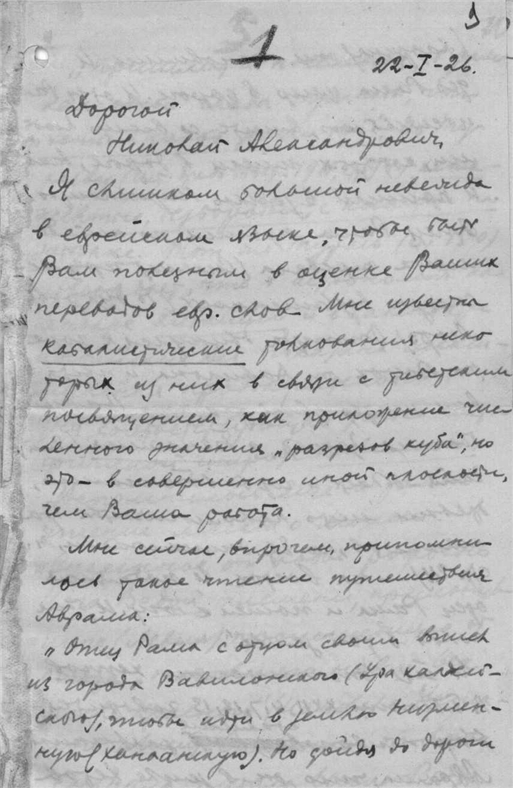 1
22-I-26.
Дорогой
Николай Александрович,
Я слишком большой невежда
в еврейском языке, чтобы быть
Вам полезным в оценке Ваших
переводов евр. слов. Мне известны
кабалистические толкования неко
торых из них в связи с тибетским
посвящением, как приложение чис
ленного значения „разрезов куба", но
это – в совершенно иной плоскости,
чем Ваша работа.
Мне сейчас, впрочем, припомни
лось такое чтение путешествия
Аврама:
„Отец Рама с отцом своим вышел
из города Вавилонского (Ура халдей-
ского), чтобы идти в землю
(Ханаанскую). Но дойдя до дороги